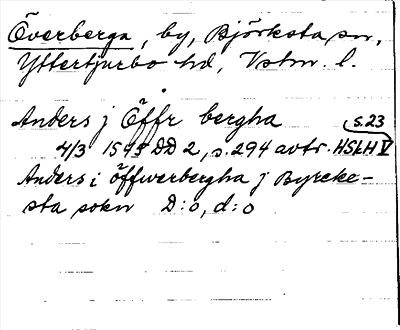 Överberga, by, Björksta sn,
Yttertjurbo hd, Vstm. l.
Anders j Öffr bergha s. 23
4/3 1545 DD 2, s. 294 avtr. HSLH V
Anders i öffwerbergha j Byrcke-
sta sokn D:o, d:o